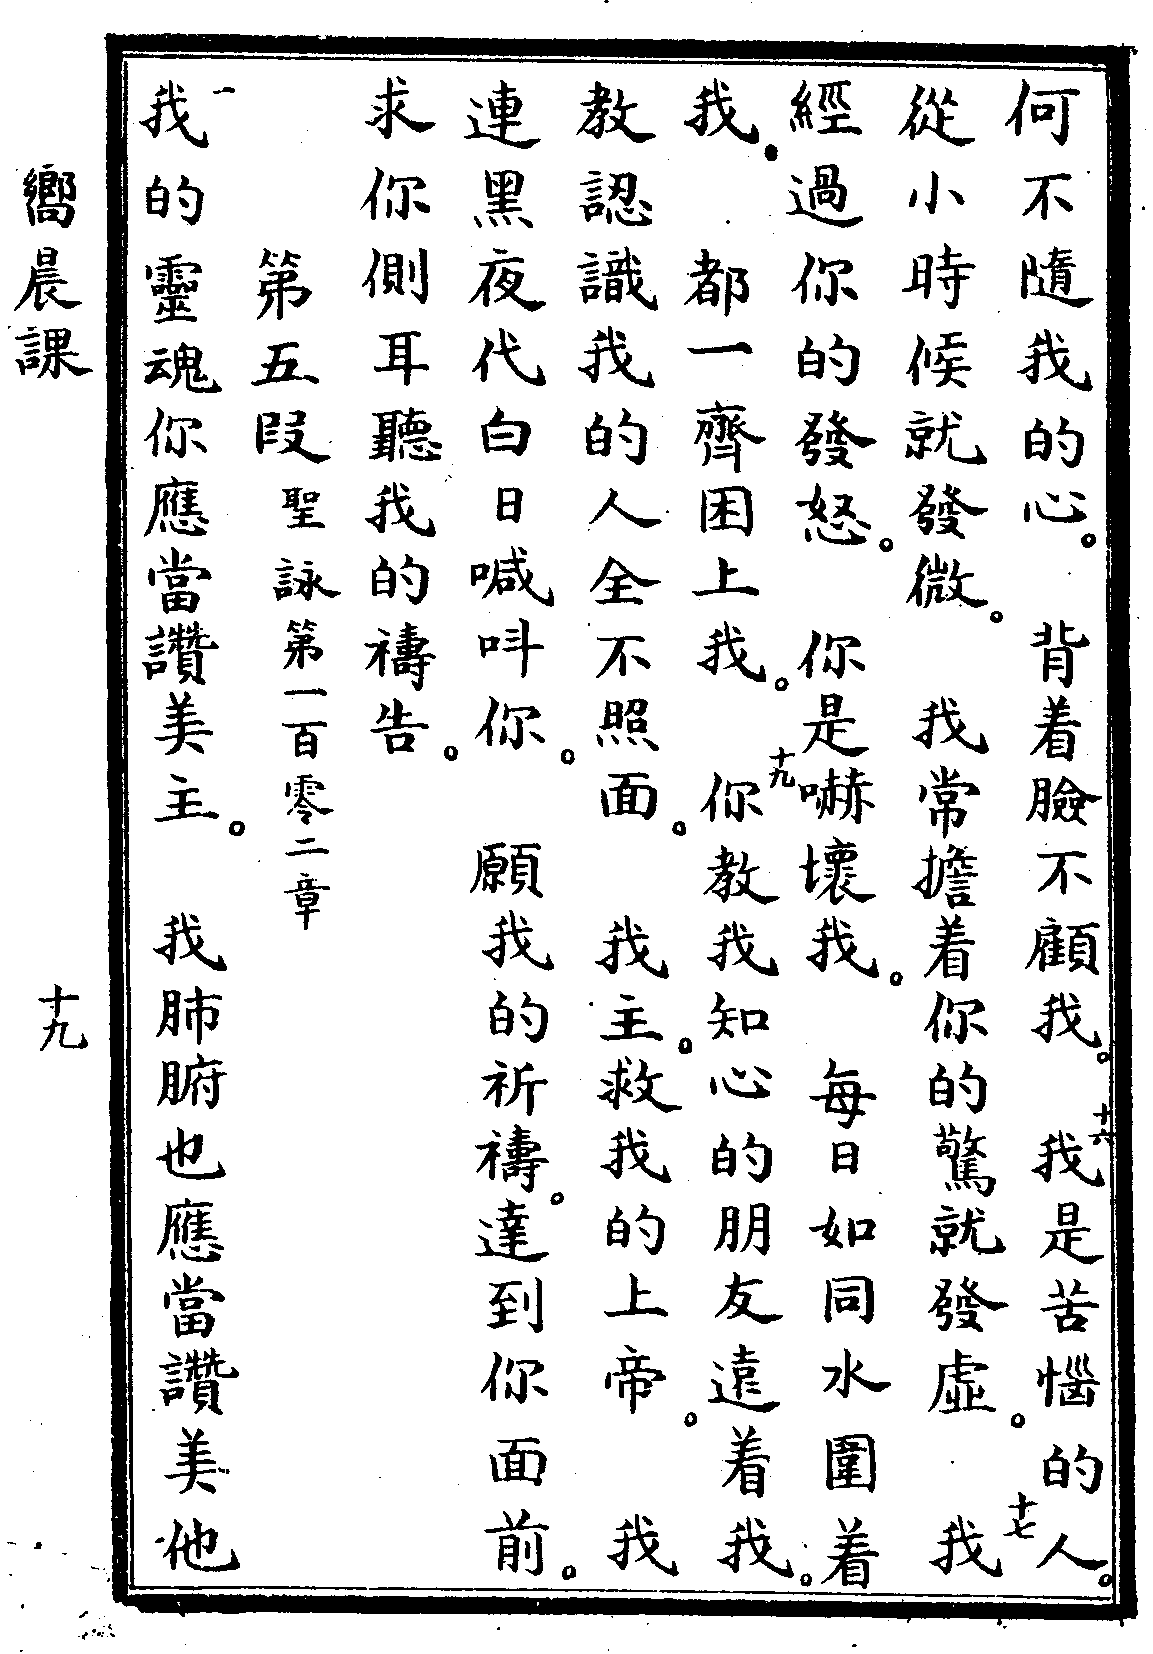 何不隨我的心。 背着臉不顧我。 十六我是苦惱的人。
從小時候就發微。 我常擔着你的驚就發虛。 十七我
經過你的發怒。 你是嚇壞我。 每日如同水圍着
我。 都一齊困上我。 十九你教我知心的朋友遠着我。
教認識我的人全不照面。 我主。救我的上帝。 我
連黑夜代白日喊呌你。 願我的祈禱。達到你面前。
求你側耳聽我的禱告。
第五段 聖詠第一百零二章
一我的靈魂你應當讚美主。 我肺腑也應當讚美他
嚮晨課 十九